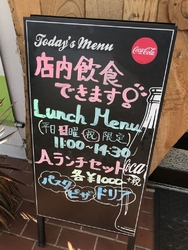 Today's Menu
Coca-Cola
店内飲食
できます
Lunch Menu
(平日 日曜 祝 限定)
11:00~14:30
Aランチセット
各¥1000+税
パスタ
ピザ ドリア